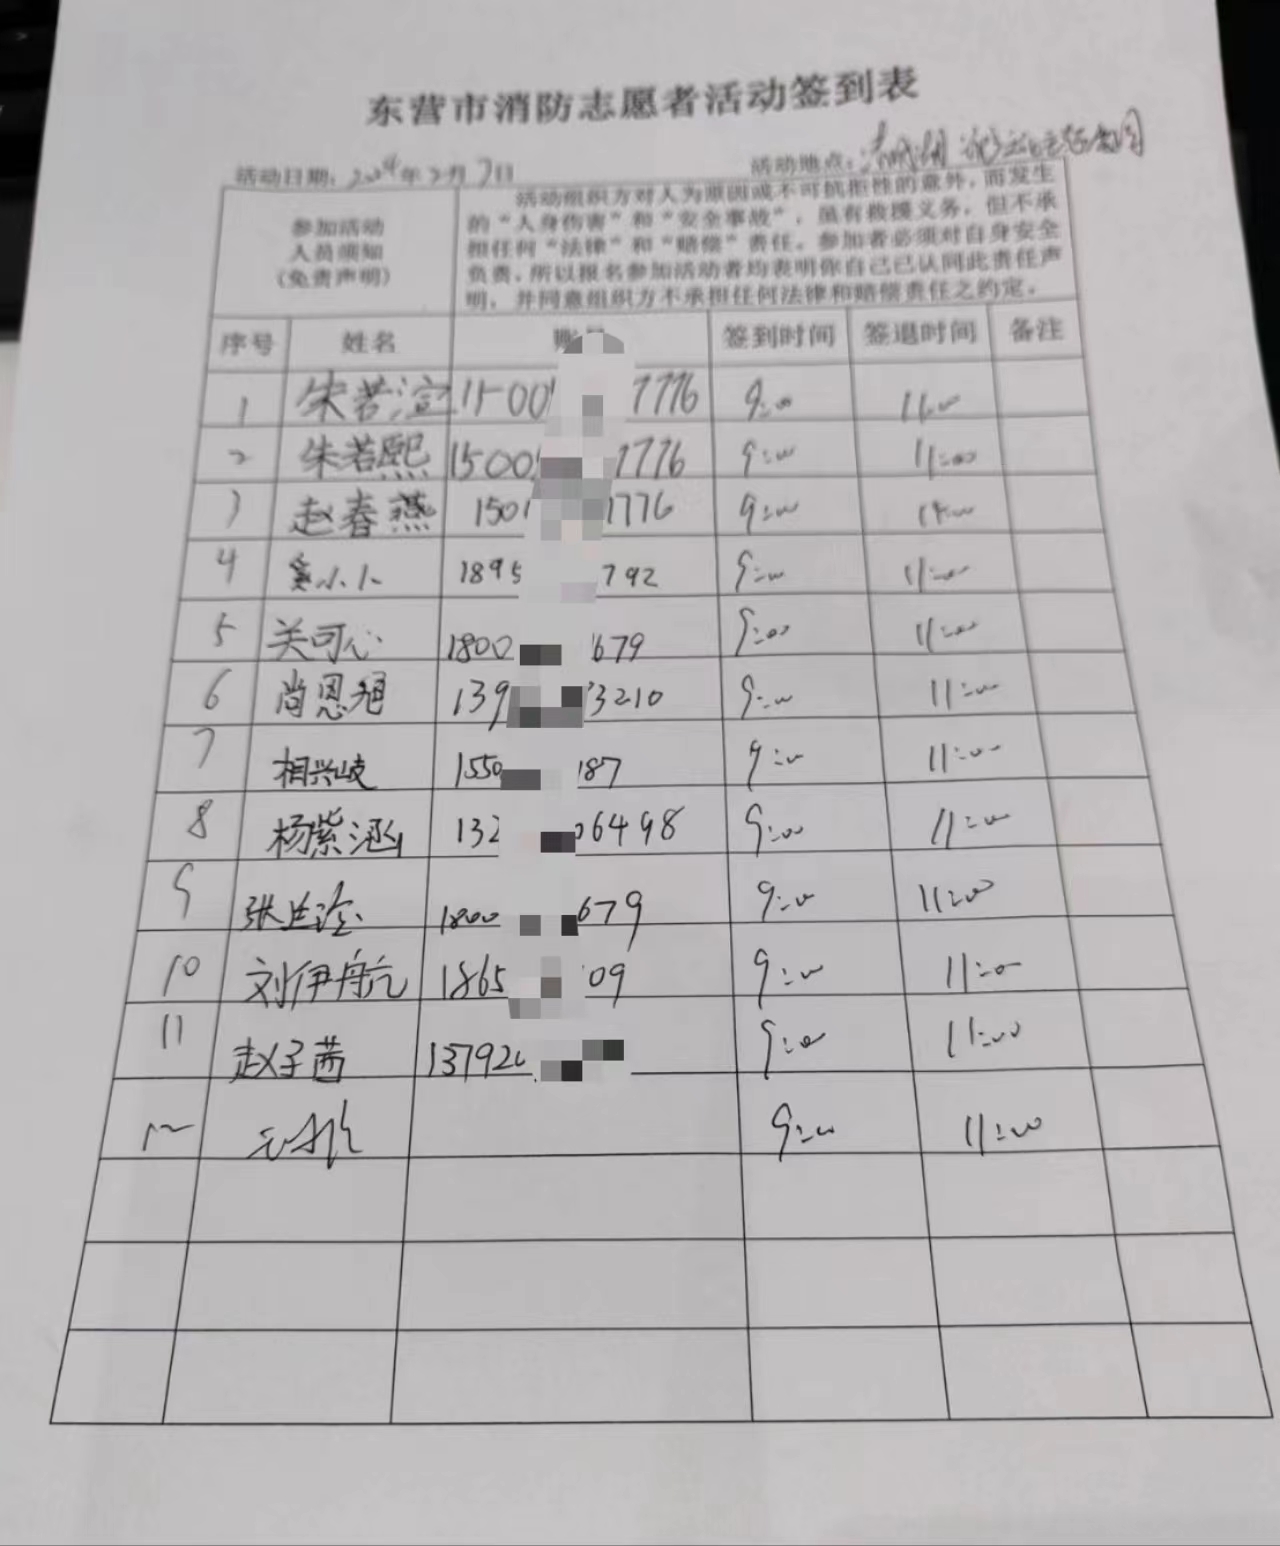 东营市消防志愿者活动签到表
活动日期：2024年2月7日 活动地点：清风湖
参加活动
人员须知
（免责声明）
活动组织方对人为原因或不可抗拒性的意外，而发生
的“人身伤害”和“安全事故”，虽有救援义务，但不承
担任何“法律”和“赔偿”责任。参加者必须对自身安全
负责，所以报名参加活动者均表明你自己已认同此责任声
明，并同意组织方不承担任何法律和赔偿责任之约定。
序号 姓名 签到时间 签退时间 备注
1 朱若渲 1500 7776 9:00 11:00
2 朱若熙 1500 7776 9:00 11:00
3 赵春燕 150 1776 9:00 11:00
4 小小 1895 792 9:00 11:00
5 关可心 1800 679 9:00 11:00
6 尚恩旭 139 3210 9:00 11:00
7 相兴岐 1550 187 9:00 11:00
8 杨紫涵 132 06498 9:00 11:00
9 张 1800 679 9:00 11:00
10 刘伊航 1865 09 9:00 11:00
11 赵子茜 13792 9:00 11:00
12 9:00 11:00